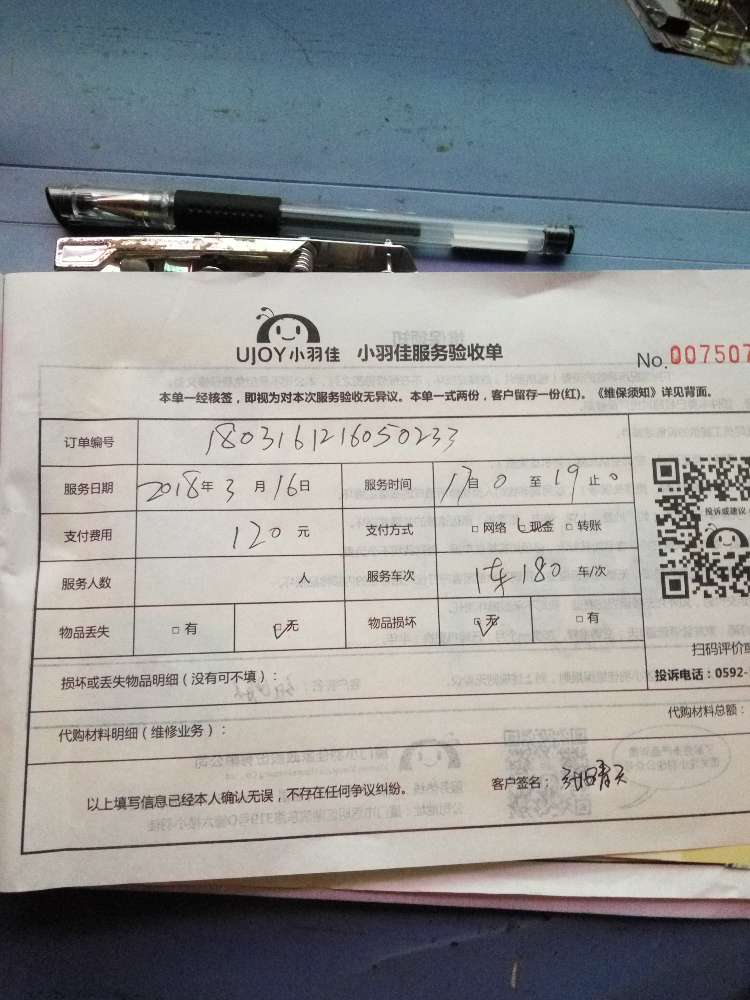 UJOY小羽佳 小羽佳服务验收单
No.007507
本单一经核签，即视为对本次服务验收无异议。本单一式两份，客户留存一份(红)。《维保须知》详见背面。
订单编号 1803161216050233
服务日期 2018年3月16日 服务时间 17自0至19止0
支付费用 120元 支付方式 □网络 □现金 □转账
服务人数 人 服务车次 1车180 车/次
物品丢失 □有 □无 物品损坏 □无 □有
投诉或建议
扫码评价
投诉电话：0592-
损坏或丢失物品明细（没有可不填）：
代购材料明细（维修业务）：
代购材料总额：
以上填写信息已经本人确认无误，不存在任何争议纠纷。
客户签名：